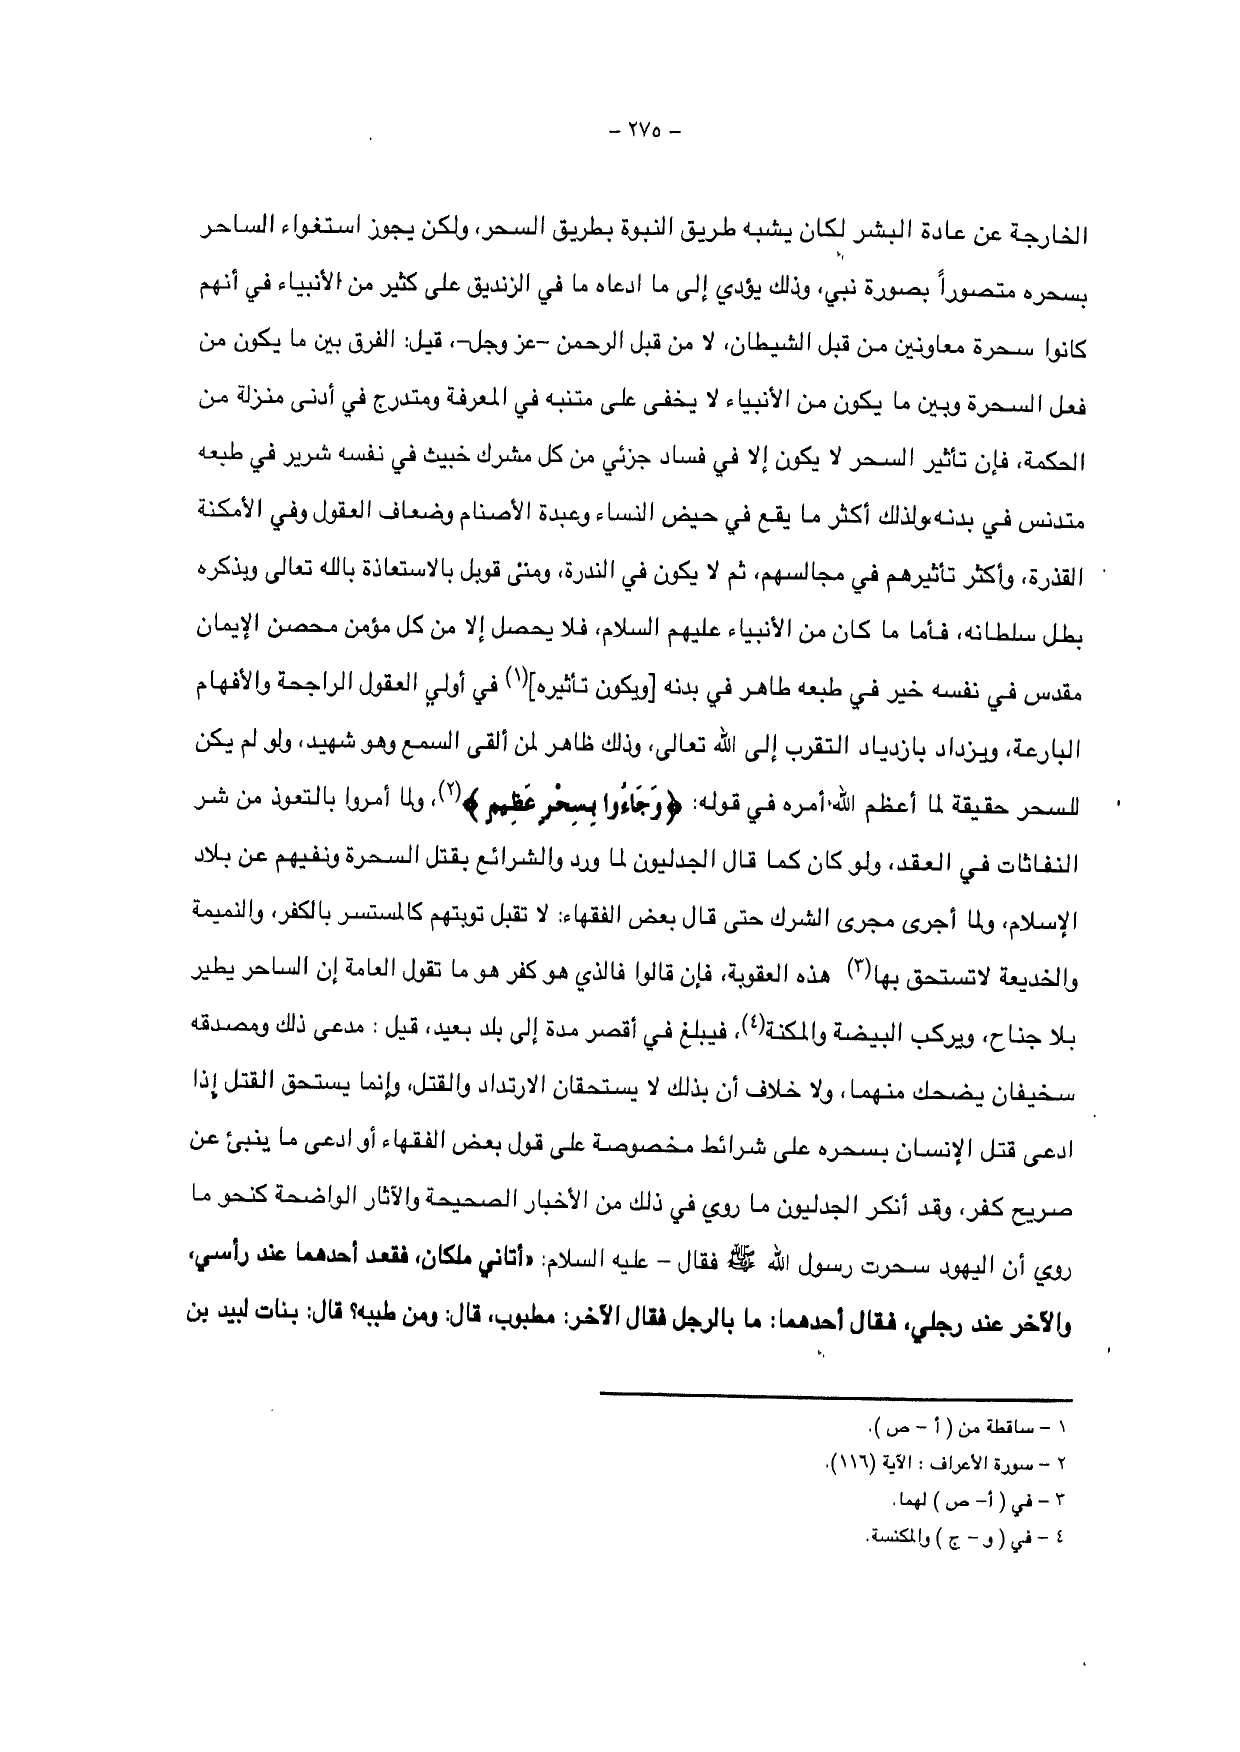 – ٢٧٥ –
الخارجة عن عادة البشر لكان يشبه طريق النبوة بطريق السحر، ولكن يجوز استغواء الساحر
بسحره متصوراً بصورة نبي، وذلك يؤدي إلى ما ادعاه ما في الزنديق على كثير من الأنبياء في أنهم
كانوا سحرة معاونين من قبل الشيطان، لا من قبل الرحمن -عز وجل-، قيل: الفرق بين ما يكون من
فعل السحرة وبين ما يكون من الأنبياء لا يخفى على متنبه في المعرفة ومتدرج في أدنى منزلة من
الحكمة، فإن تأثير السحر لا يكون إلا في فساد جزئي من كل مشرك خبيث في نفسه شرير في طبعه
متدنس في بدنه ولذلك أكثر ما يقع في حيض النساء وعبدة الأصنام وضعاف العقول وفي الأمكنة
القذرة، وأكثر تأثيرهم في مجالسهم، ثم لا يكون في الندرة، ومتى قوبل بالاستعاذة بالله تعالى وبذكره
بطل سلطانه، فأما ما كان من الأنبياء عليهم السلام، فلا يحصل إلا من كل مؤمن محصن الإيمان
مقدس في نفسه خير في طبعه طاهر في بدنه [ويكون تأثيره](١) في أولي العقول الراجحة والأفهام
البارعة، ويزداد بازدياد التقرب إلى الله تعالى، وذلك ظاهر لمن ألقى السمع وهو شهيد، ولو لم يكن
للسحر حقيقة لما أعظم الله أمره في قوله: ﴿وَجَاءُوا بِسِحْرٍ عَظِيمٍ﴾(٢)، ولما أمروا بالتعوذ من شر
النفاثات في العقد، ولو كان كما قال الجدليون لما ورد والشرائع بقتل السحرة ونفيهم عن بلاد
الإسلام، ولما أجرى مجرى الشرك حتى قال بعض الفقهاء: لا تقبل توبتهم كالمستسر بالكفر، والنميمة
والخديعة لاتستحق بها(٣) هذه العقوبة، فإن قالوا فالذي هو كفر هو ما تقول العامة إن الساحر يطير
بلا جناح، ويركب البيضة والمكنة(٤)، فيبلغ في أقصر مدة إلى بلد بعيد، قيل : مدعى ذلك ومصدقه
سخيفان يضحك منهما، ولا خلاف أن بذلك لا يستحقان الارتداد والقتل، وإنما يستحق القتل إذا
ادعى قتل الإنسان بسحره على شرائط مخصوصة على قول بعض الفقهاء أو ادعى ما ينبئ عن
صريح كفر، وقد أنكر الجدليون ما روي في ذلك من الأخبار الصحيحة والآثار الواضحة كنحو ما
روي أن اليهود سحرت رسول الله ﷺ فقال – عليه السلام: «أتاني ملكان، فقعد أحدهما عند رأسي،
والآخر عند رجلي، فقال أحدهما: ما بالرجل فقال الآخر: مطبوب، قال: ومن طببه؟ قال: بنات لبيد بن
١ – ساقطة من ( أ – ص ).
٢ – سورة الأعراف : الآية (١١٦).
٣ – في ( أ– ص ) لهما.
٤ – في ( و – ج ) والمكنسة.